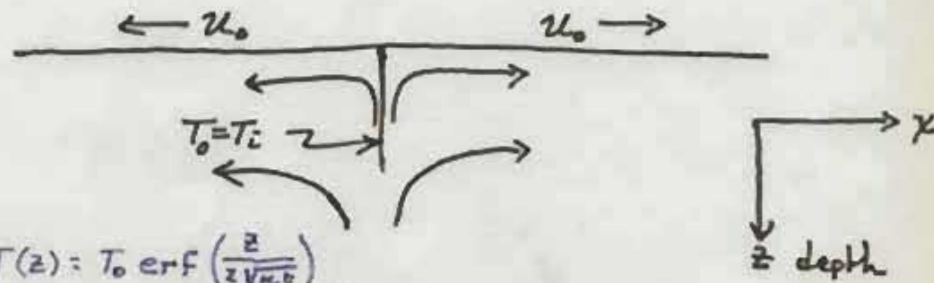 ← u₀ u₀ →
T₀=Tᵢ
x
z depth
T(z) = T₀ erf(z / 2√